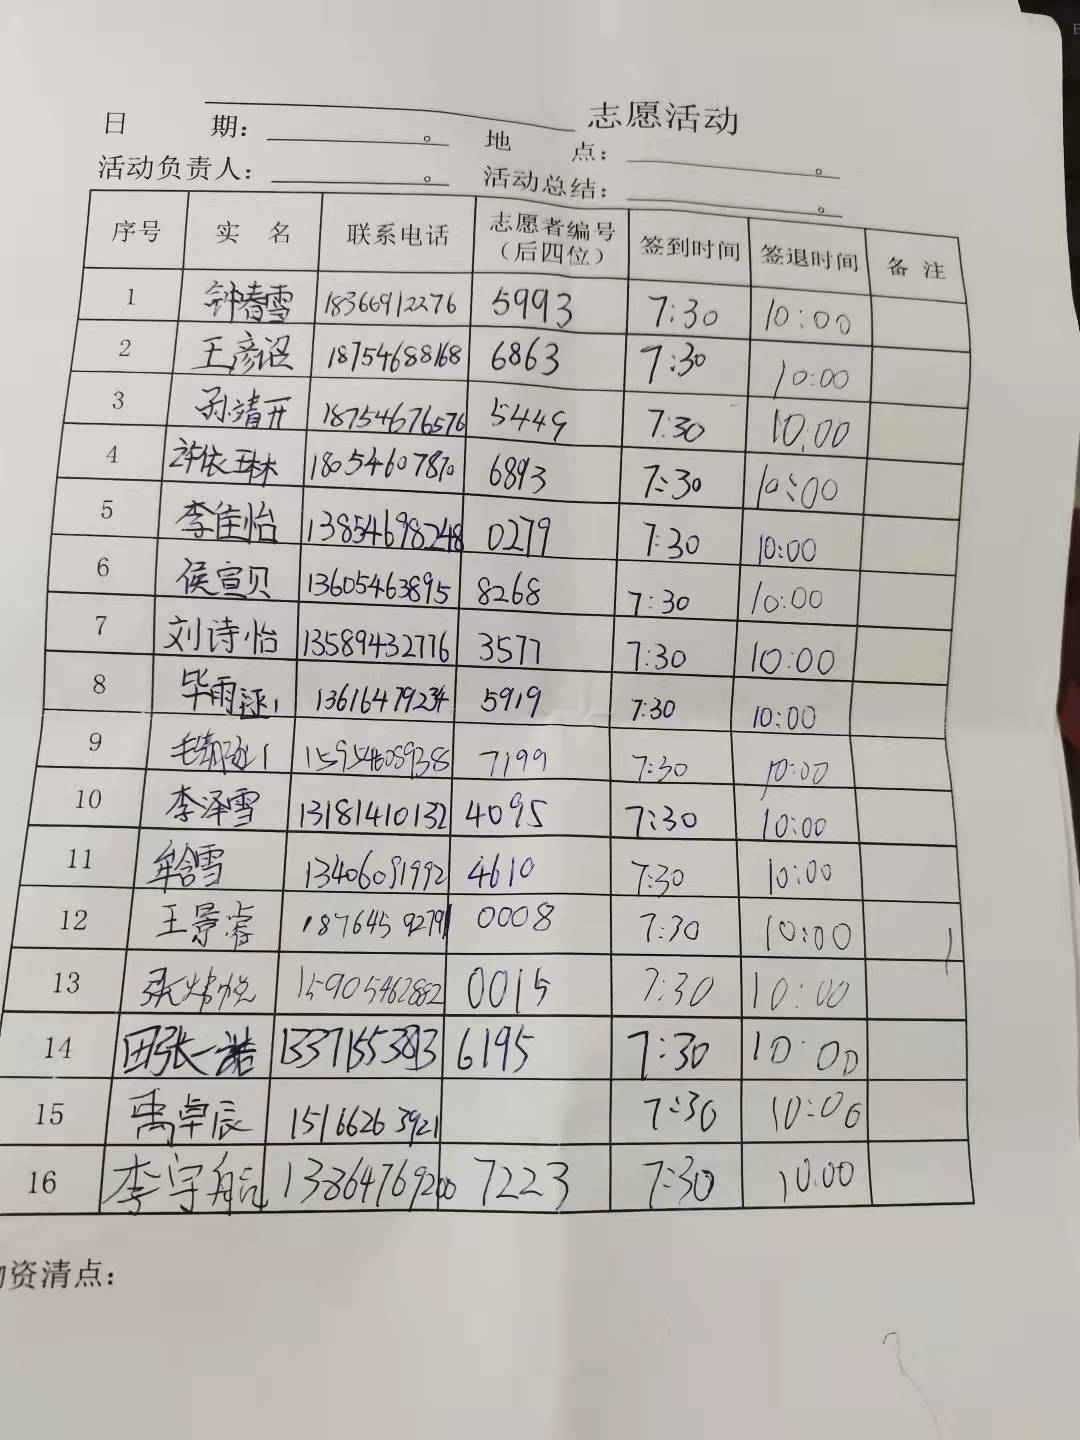 志愿活动
日 期： 。 地 点： 。
活动负责人： 。 活动总结： 。
序号 实 名 联系电话 志愿者编号（后四位） 签到时间 签退时间 备 注
1 钟春雪 18366912276 5993 7:30 10:00
2 王彦诏 18754688168 6863 7:30 10:00
3 孙靖开 18754676576 5449 7:30 10:00
4 许依琳 18054607870 6893 7:30 10:00
5 李佳怡 13854698248 0279 7:30 10:00
6 侯宣贝 13605463895 8268 7:30 10:00
7 刘诗怡 13589432776 3577 7:30 10:00
8 毕雨涵 13616479234 5919 7:30 10:00
9 15954608938 7199 7:30 10:00
10 李泽雪 13181410132 4095 7:30 10:00
11 牟含雪 13406091992 4610 7:30 10:00
12 王景蓉 18764592791 0008 7:30 10:00
13 张炜悦 15905462882 0015 7:30 10:00
14 田张一诺 6195 7:30 10:00
15 禹卓辰 15166263921 7:30 10:00
16 李宇航 13364769200 7223 7:30 10:00
物资清点：